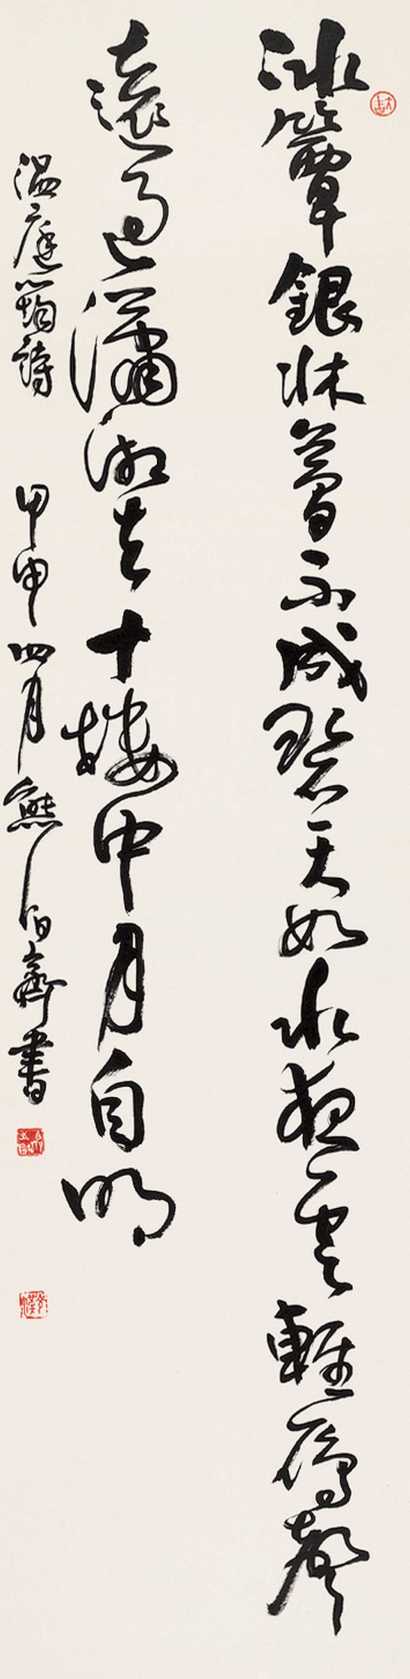 冰簟銀牀夢不成碧天如水夜雲輕鴈聲
遠過瀟湘去十樓中月自明
溫庭筠詩 甲申四月熊伯齊書